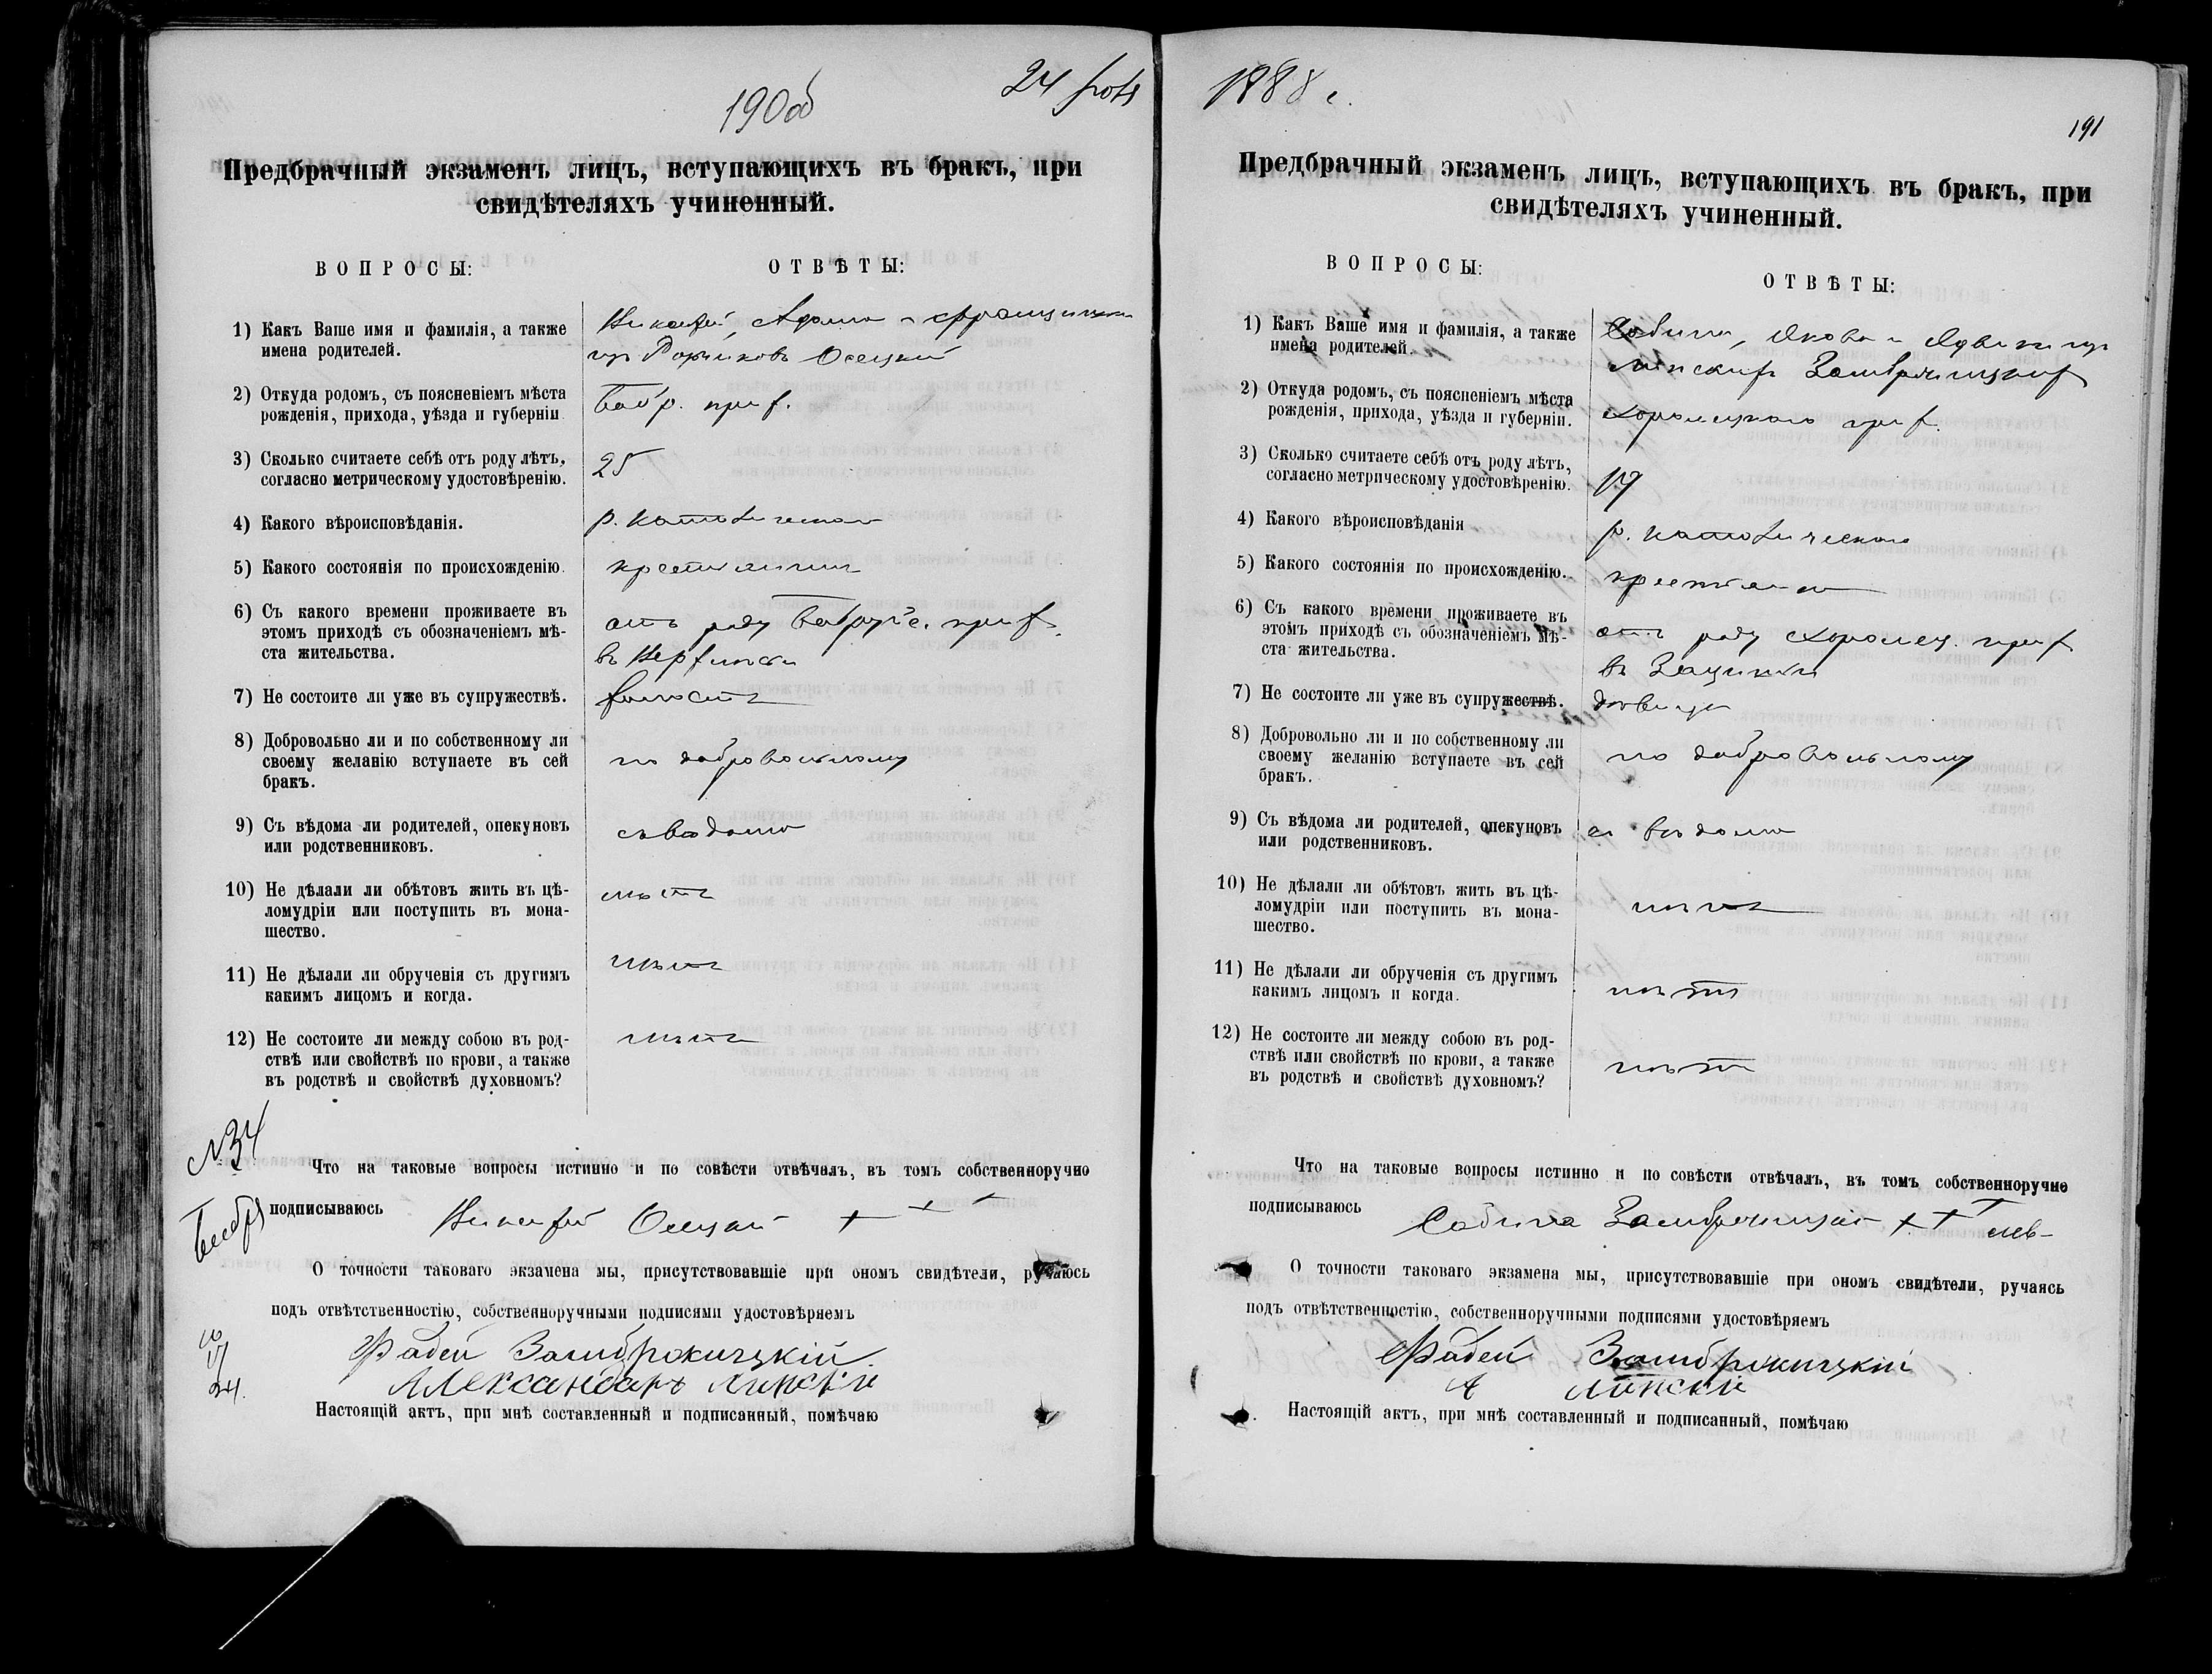 190об
Предбрачный экзаменъ лицъ, вступающихъ въ бракъ, при
свидѣтеляхъ учиненный.
ВОПРОСЫ:
ОТВѢТЫ:
1) Какъ Ваше имя и фамилія, а также
имена родителей.
Адама и Францишки
Осецкий
2) Откуда родомъ, съ поясненіемъ мѣста
рожденія, прихода, уѣзда и губерніи
Бобр. прих.
3) Сколько считаете себѣ отъ роду лѣтъ,
согласно метрическому удостовѣренію.
25
4) Какого вѣроисповѣданія.
р. католическаго
5) Какого состоянія по происхожденію.
крестьянин
6) Съ какого времени проживаете въ
этомъ приходѣ съ обозначеніемъ мѣ-
ста жительства.
отъ роду прих.
въ
7) Не состоите ли уже въ супружествѣ.
холостъ
8) Добровольно ли и по собственному ли
своему желанію вступаете въ сей
бракъ.
по добровольному
9) Съ вѣдома ли родителей, опекуновъ
или родственниковъ.
съ вѣдома
10) Не дѣлали ли обѣтовъ жить въ цѣ-
ломудріи или поступить въ мона-
шество.
нѣтъ
11) Не дѣлали ли обрученія съ другимъ
какимъ лицомъ и когда.
нѣтъ
12) Не состоите ли между собою въ род-
ствѣ или свойствѣ по крови, а также
въ родствѣ и свойствѣ духовномъ?
нѣтъ
№34
Что на таковые вопросы истинно и по совѣсти отвѣчалъ, въ томъ собственноручно
подписываюсь Осецкий + + +
О точности таковаго экзамена мы, присутствовавшіе при ономъ свидѣтели, ручаюсь
подъ отвѣтственностію, собственноручными подписями удостовѣряемъ
Фадей Замброжицкій
Александаръ Липскіи
Настоящій актъ, при мнѣ составленный и подписанный, помѣчаю
1888 г.
191
Предбрачный экзаменъ лицъ, вступающихъ въ бракъ, при
свидѣтеляхъ учиненный.
ВОПРОСЫ:
ОТВѢТЫ:
1) Какъ Ваше имя и фамилія, а также
имена родителей.
Сабина, Якова и Ядвиги
Замброжицких
2) Откуда родомъ, съ поясненіемъ мѣста
рожденія, прихода, уѣзда и губерніи.
прих.
3) Сколько считаете себѣ отъ роду лѣтъ,
согласно метрическому удостовѣренію.
19
4) Какого вѣроисповѣданія
р. католическаго
5) Какого состоянія по происхожденію.
крестьянка
6) Съ какого времени проживаете въ
этомъ приходѣ съ обозначеніемъ мѣ-
ста жительства.
отъ роду прих.
въ
7) Не состоите ли уже въ супружествѣ.
дѣвица
8) Добровольно ли и по собственному ли
своему желанію вступаете въ сей
бракъ.
по добровольному
9) Съ вѣдома ли родителей, опекуновъ
или родственниковъ.
съ вѣдома
10) Не дѣлали ли обѣтовъ жить въ цѣ-
ломудріи или поступить въ мона-
шество.
нѣтъ
11) Не дѣлали ли обрученія съ другимъ
какимъ лицомъ и когда.
нѣтъ
12) Не состоите ли между собою въ род-
ствѣ или свойствѣ по крови, а также
въ родствѣ и свойствѣ духовномъ?
нѣтъ
Что на таковые вопросы истинно и по совѣсти отвѣчалъ, въ томъ собственноручно
подписываюсь Сабина + + +
О точности таковаго экзамена мы, присутствовавшіе при ономъ свидѣтели, ручаясь
подъ отвѣтственностію, собственноручными подписями удостовѣряемъ
Фадей Замброжицкій
А Липскіи
Настоящій актъ, при мнѣ составленный и подписанный, помѣчаю